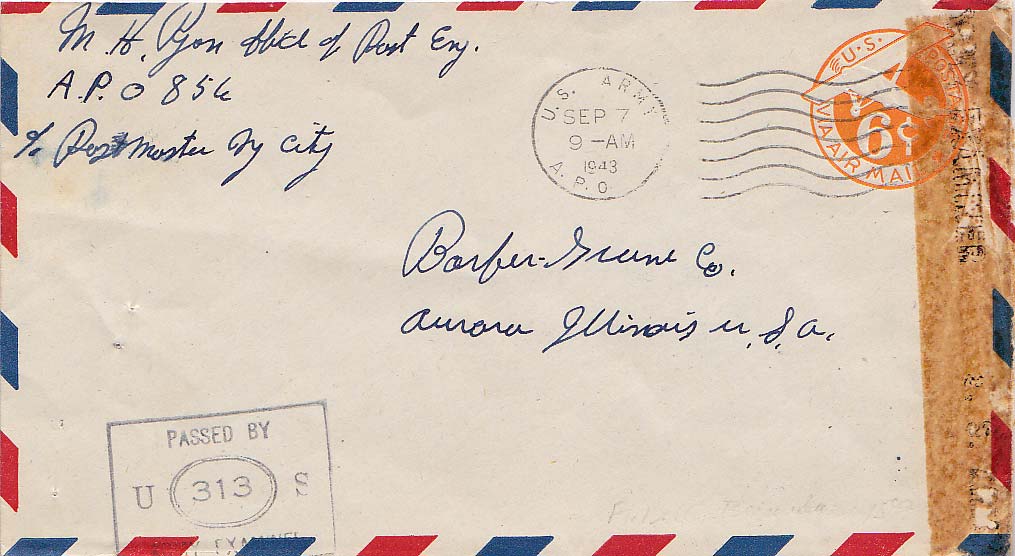 M. H. Ryon Hdid of Post Eng.
A.P.O 856
c/o Postmaster Ny City
U.S. ARMY
SEP 7
9-AM
1943
A.P.O.
U.S. POSTAGE
6¢
VIA AIR MAIL
Barber-Greene Co.
Aurora Illinois U.S.A.
PASSED BY
U 313 S
ARMY EXAMINER